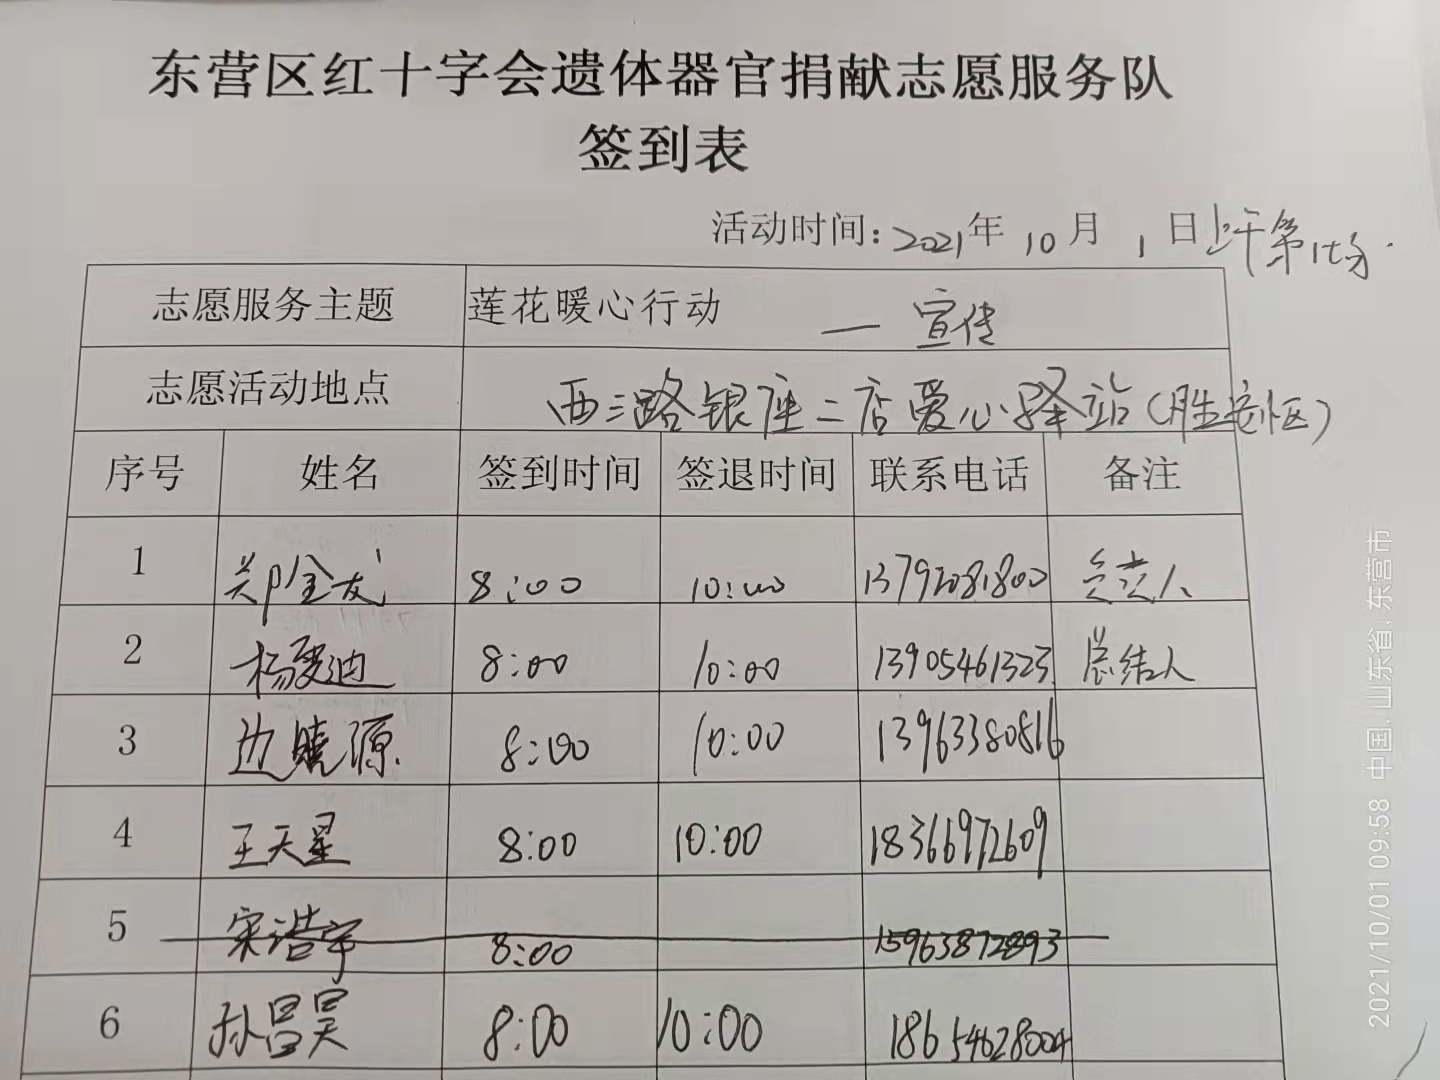 东营区红十字会遗体器官捐献志愿服务队
签到表
活动时间：2021年10月1日上午第1场.
志愿服务主题 莲花暖心行动 — 宣传
志愿活动地点 西三路银座二店爱心驿站（胜安怡区）
序号 姓名 签到时间 签退时间 联系电话 备注
1 郑金友 8:00 10:00 13792081800 负责人
2 杨爱迪 8:00 10:00 13905461323 总结人
3 边晓源 8:00 10:00 13963380816
4 王天星 8:00 10:00 18366972609
5 宋浩宇 8:00 15963872893
6 孙昌昊 8:00 10:00 18654628004
2021/10/01 09:58 中国.山东省.东营市